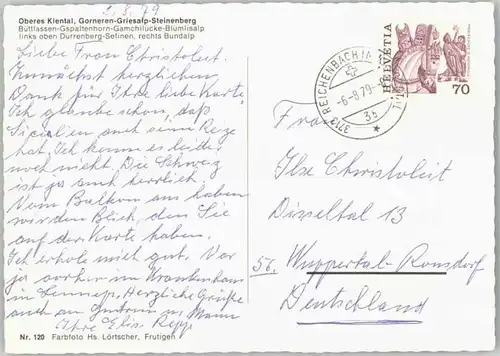 3.8.79
Oberes Kiental, Gorneren-Griesalp-Steinenberg
Büttlassen-Gspaltenhorn-Gamchilücke-Blümlisalp
links oben Dürrenberg-Sefinen, rechts Bundalp
Liebe Frau Christoleit.
Zunächst herzlichen
Dank für Ihre liebe Karte
Ich glaube schon, daß
Sicilien auch seine Reize
hat. Ich kenne es leider
noch nicht. Die Schweiz
ist ja auch herrlich.
Vom Balkon aus haben
wir den Blick, den Sie
auf der Karte haben.
Ich erhole mich gut. War
ja vorher im Krankenhaus
in Lennep. Herzliche Grüße
auch an Ihren Mann
Ihre Elis.
Nr. 120 Farbfoto Hs. Lörtscher, Frutigen
3713 REICHENBACH IM
-6.-8.79-
3b
HELVETIA
70
Frau
Ilse Christoleit
Düsseltal 13
56. Wuppertal-Ronsdorf
Deutschland